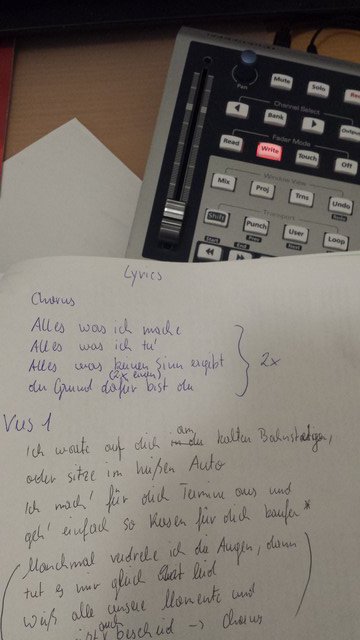 Pan
Mute
Solo
Rec
Channel Select
Bank
Fader Mode
Read
Write
Touch
Off
Window View
Mix
Proj
Trns
Undo
Transport
Shift
Punch
User
Loop
Lyrics
Chorus
Alles was ich mache
Alles was ich tu'
Alles was keinen Sinn ergibt
der Grund dafür bist du
2x
Vers 1
Ich warte auf dich am kalten Bahnsteigen,
oder sitze im heißen Auto
Ich mach' für dich Termine aus und
geh' einfach so Rosen für dich kaufen*
Manchmal verdrehe ich die Augen, dann
tut es mir gleich leid
Weiß alle unsere Momente und
auch bescheid -> Chorus